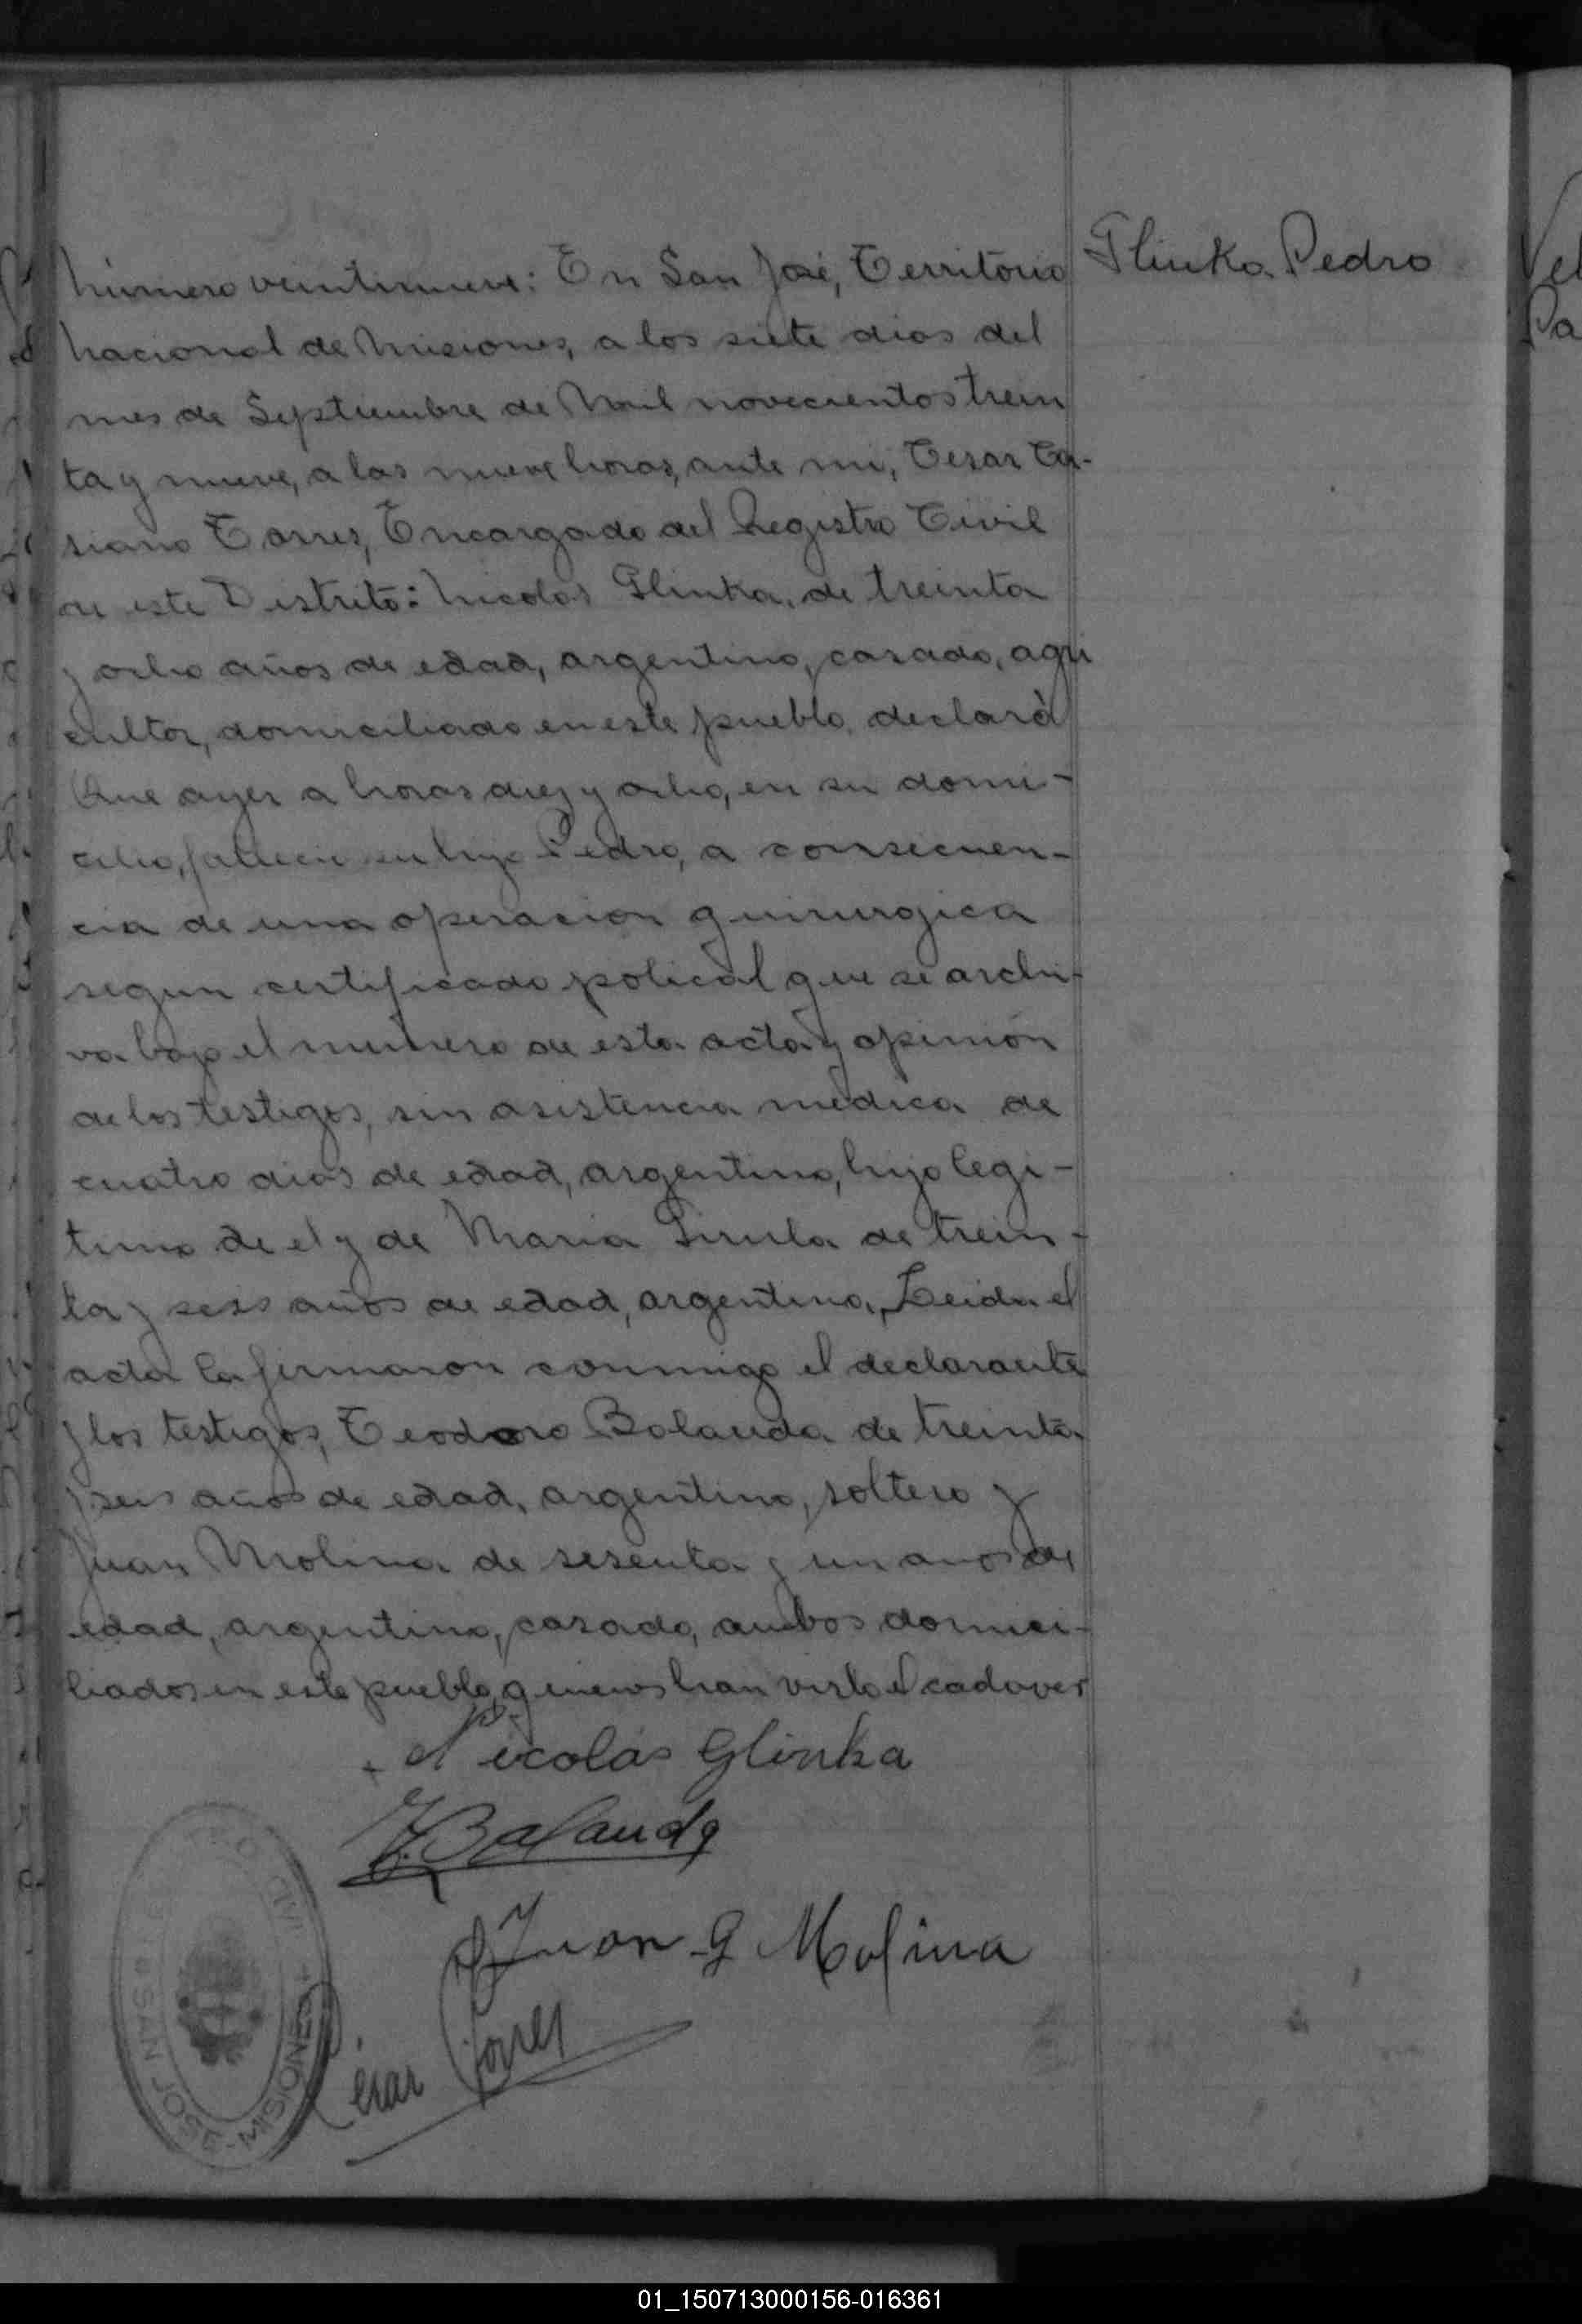 Número veintinueve: En San José, Territorio
Glinka Pedro
Nacional de Misiones, a los siete dias del
mes de Septiembre de Mil novecientos trein
ta y nueve, a las nueve horas, ante mi, Cesar Ca-
siano Torres, Encargado del Registro Civil
de este Distrito: Nicolas Glinka, de treinta
y ocho años de edad, argentino, casado, agri
cultor, domiciliado en este pueblo, declaró
Que ayer a horas diez y ocho, en su domi-
cilio, fallecio su hijo Pedro, a consecuen-
cia de una operacion quirurgica
segun certificado polical que se archi-
va bajo el numero de esta acta y opinión
de los testigos, sin asistencia medica de
cuatro dias de edad, argentino, hijo legi-
timo de el y de Maria de trein-
ta y seis años de edad, argentina, Leida el
acta la firmaron conmigo el declarante
y los testigos, Teodoro Balauda de treinta
y seis años de edad, argentino, soltero y
Juan Molina de sesenta y un años de
edad, argentino, casado, ambos domici-
liados en este pueblo, quienes han visto el cadaver
Nicolás Glinka
T. Balauda
Juan G Molina
César Torres
CIVIL
SAN JOSE - MISIONES
Vel
Pa
01_150713000156-016361